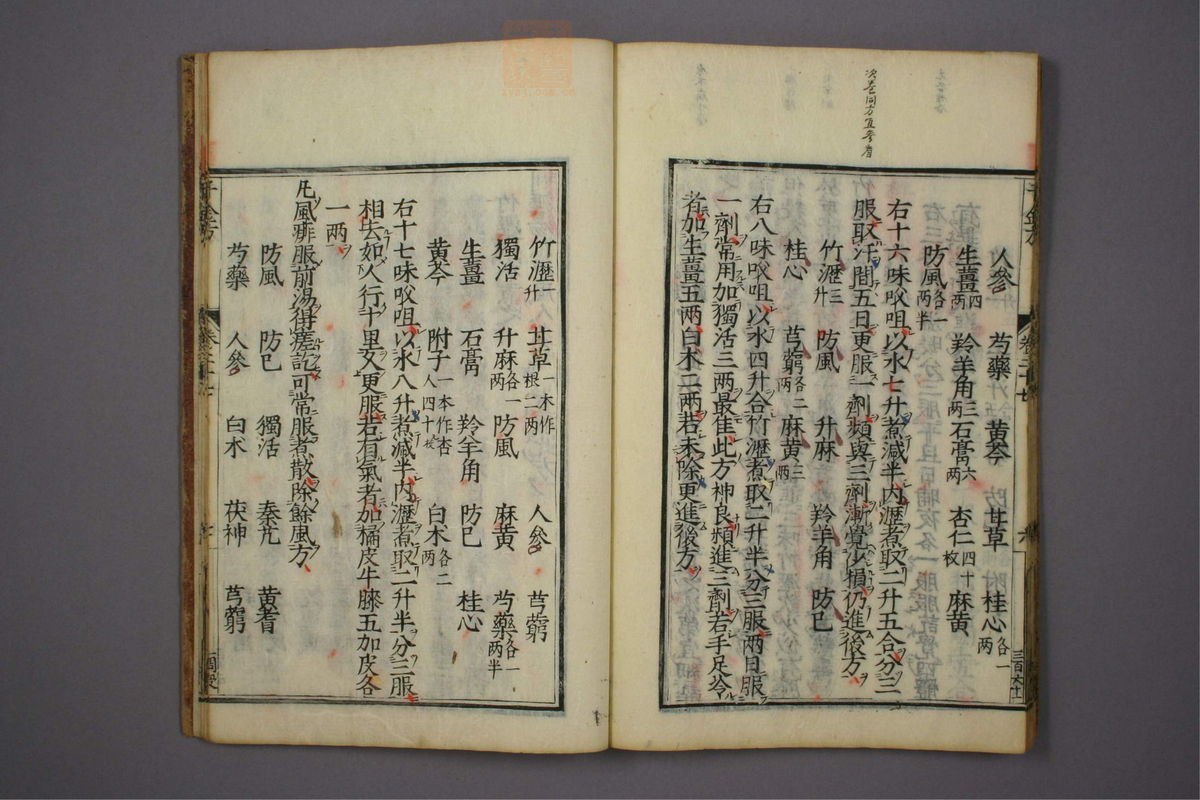 次卷同方宜參看
人參 芍藥 黃芩 防 甘草 附 桂心各一两
生薑四两 羚羊角三两 石膏六两 杏仁四十枚 麻黃
防風各一两半
右十六味㕮咀以水七升煮減半内瀝煮取二升五合分三
服取汗間五日更服一劑頻與三劑漸覺少損仍進後方
竹瀝三升 防風 升麻 羚羊角 防己
桂心 芎藭各二两 麻黃三两
右八味㕮咀以水四升合竹瀝煮取二升半分三服两日服
一劑常用加獨活三两最佳此方神良頻進三劑若手足冷
者加生薑五两白朮二两若未除更進後方
千金方
卷二十七
竹瀝一升 甘草一本作根二两 人參 芎藭
獨活 升麻各一两 防風 麻黃 芍藥各一两半
生薑 石膏 羚羊角 防己 桂心
黃芩 附子一本作杏人四十枚 白朮各二两
右十七味㕮咀以水八升煮減半内瀝煮取二升半分三服
相去如人行十里久更服若有氣者加橘皮牛膝五加皮各
一两
凡風痱服前湯得瘥訖可常服煮散除餘風方
防風 防己 獨活 秦艽 黃耆
芍藥 人參 白朮 茯神 芎藭
千金方